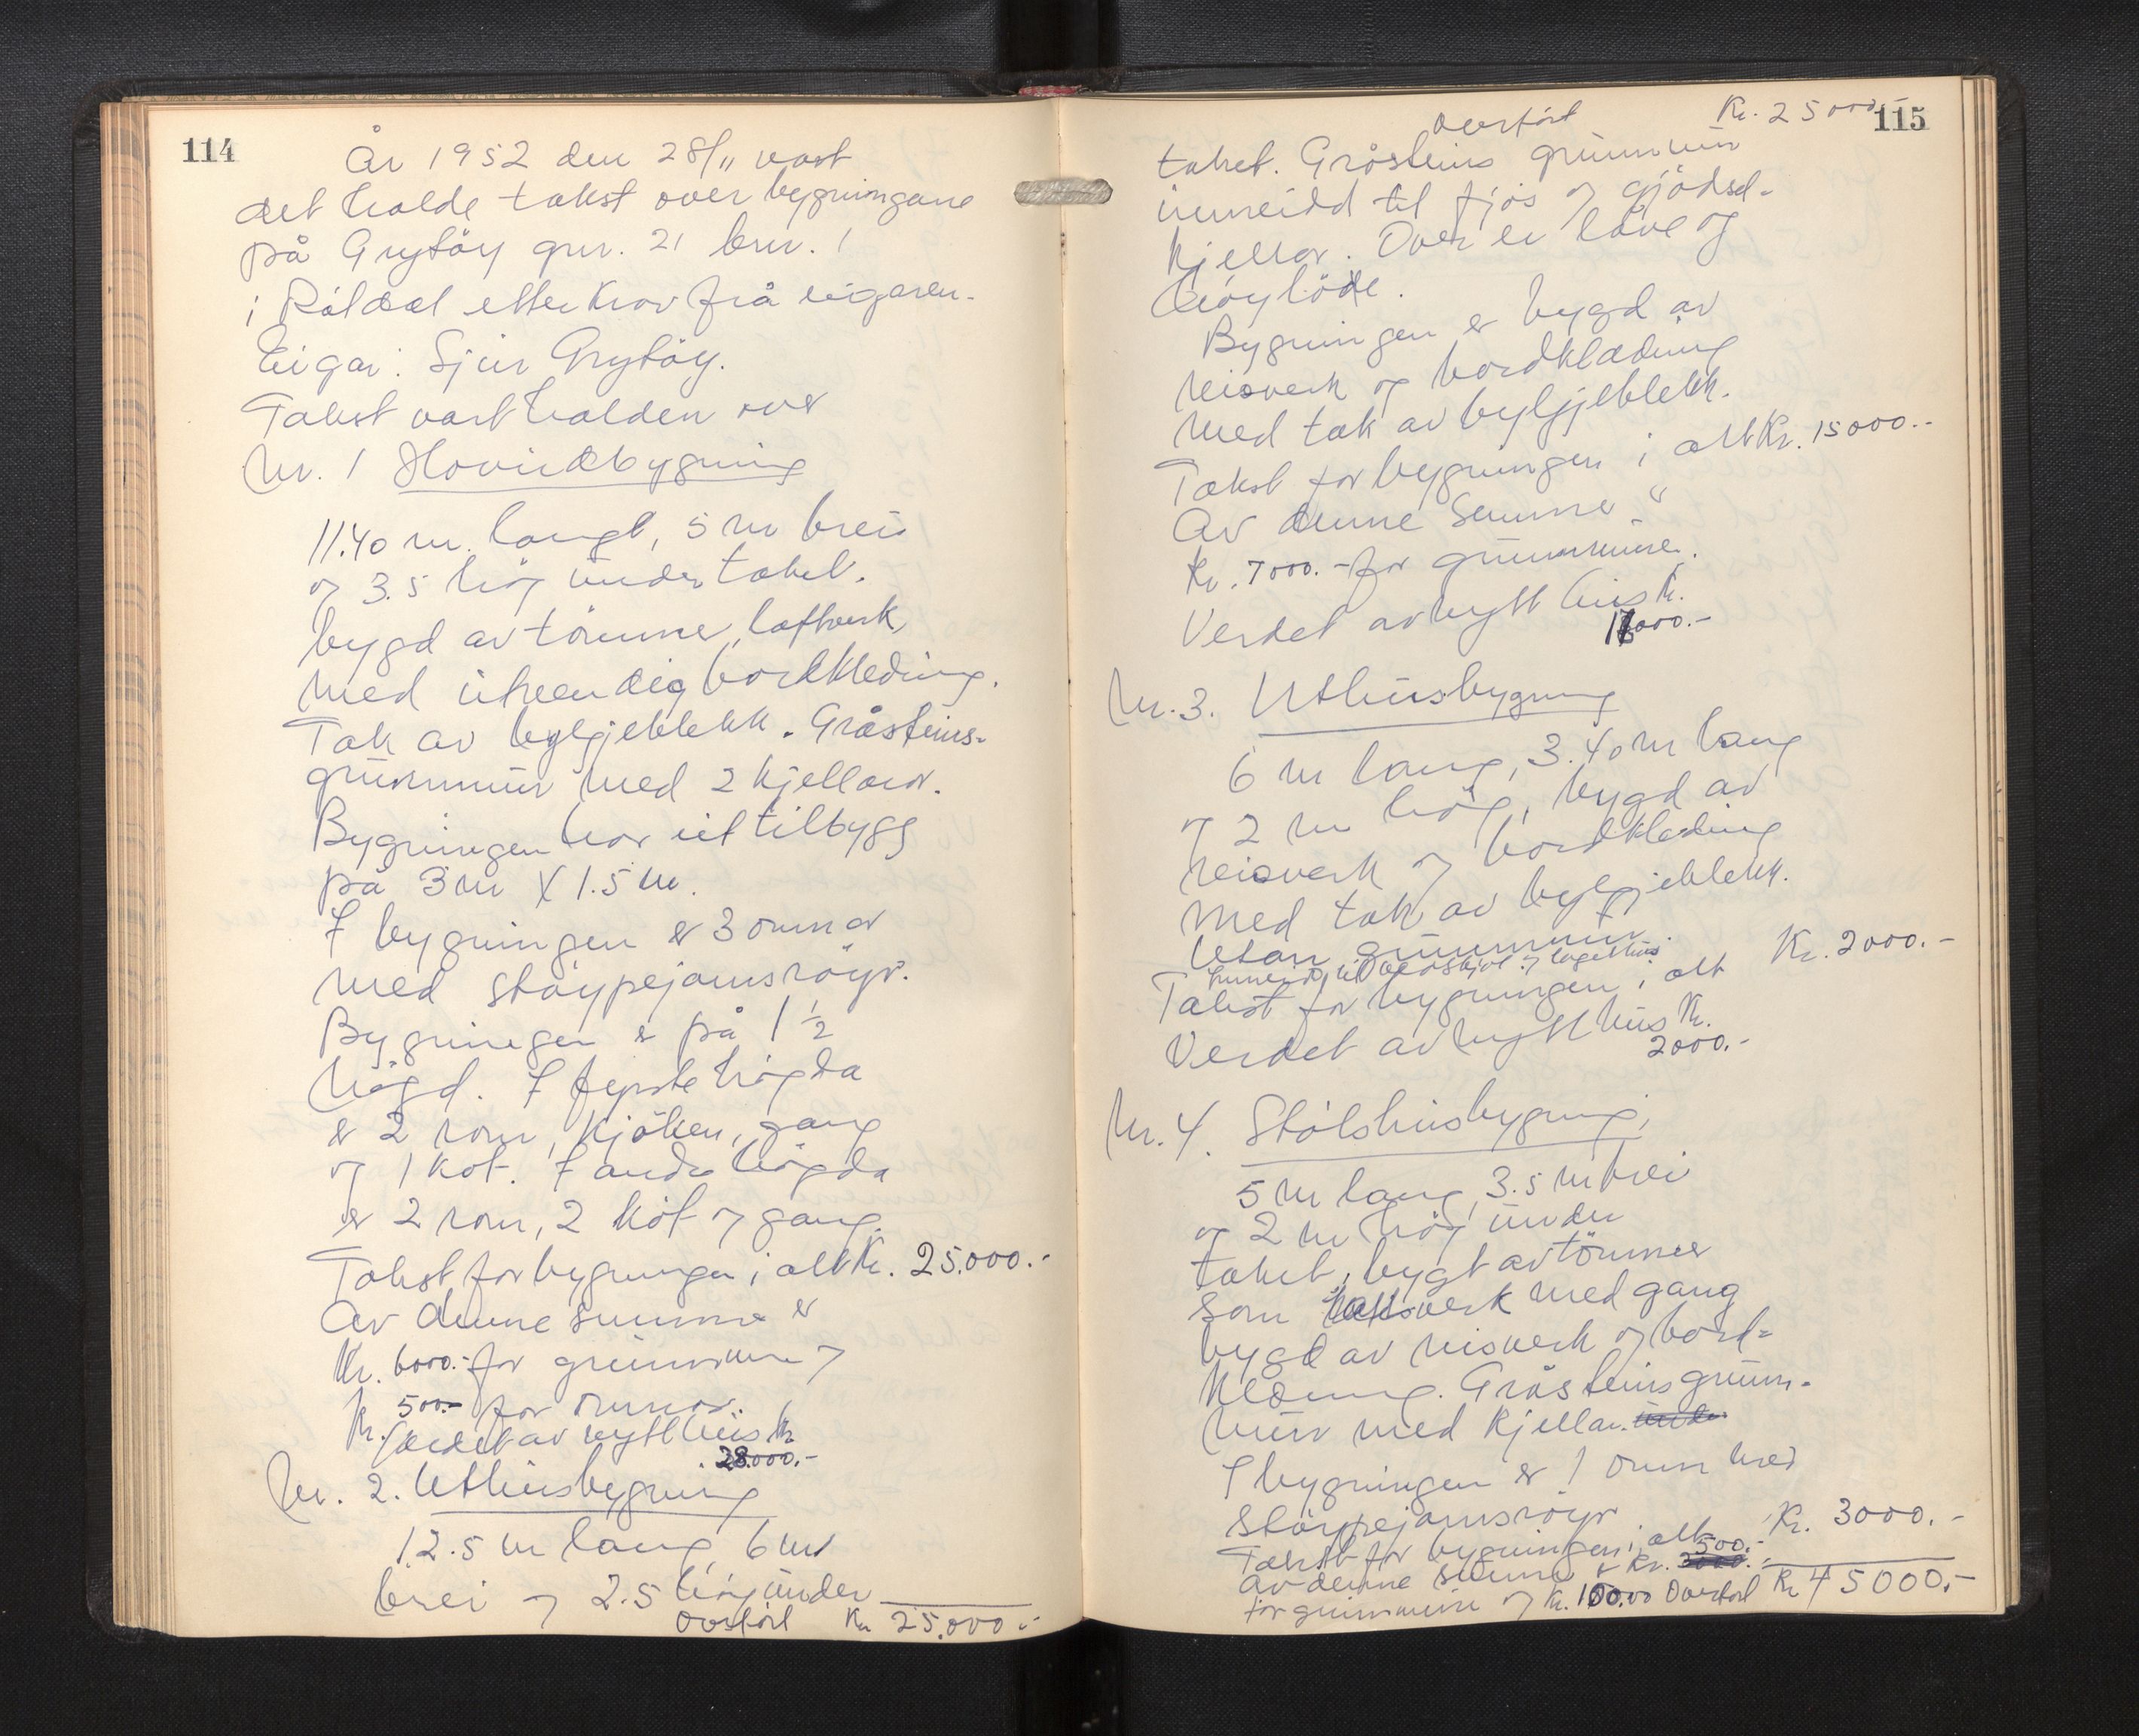 114
År 1952 den 28/11 vart
det halde takst over bygningane
på Grytöy gnr. 21 bnr. 1
i Röldal etter krav frå eigaren.
Eigar: Sjur Grytöy.
Takst vart halden over
Nr. 1 Hovudbygning
11.40 m. langt, 5 m brei
og 3.5 hög under taket.
bygd av tömmer, laftverk,
med utvendig bordkleding.
Tak av bylgjeblekk. Gråsteins-
grunnmur med 2 kjellarar.
Bygningen har eit tilbygg
på 3 m X 1.5 m.
I bygningen er 3 omnar
med støypejarnsröyr.
Bygningen er på 1 1/2
högd. I fyrste högda
er 2 rom, kjöken, gang
og 1 kot. I andre högda
er 2 rom, 2 kot og gang.
Takst for bygningen i alt Kr. 25.000.-
Av denne summe er
Kr. 6000.- for grunnmur og
Kr. 500.- for omnar.
Verdet av nytt hus Kr.
28.000.-
Nr. 2. Uthusbygning
12.5 m lang, 6 m
brei og 2.5 hög under
Overfört Kr. 25.000.-
115
Overfört Kr. 25000.-
taket. Gråsteins grunnmur
innreidd til fjös og gjödsel-
kjellar. Over er låve og
höylöde.
Bygningen er bygd av
reisverk og bordklædning
med tak av bylgjeblekk.
Takst for bygningen i alt Kr. 15000.-
Av denne summe er
Kr. 7000.- for grunnmuren.
Verdet av nytt hus Kr.
000.-
Nr. 3. Uthusbygning
6 m lang, 3.40 m lang
og 2 m hög, bygd av
reisverk og bordklædning
med tak av bylgjeblekk.
Utan grunnmur.
Innreidd til vedskjol og lagerhus.
Takst for bygningen i alt Kr. 2000.-
Verdet av nytt hus Kr.
2000.-
Nr. 4. Stölshusbygning,
5 m lang, 3.5 m brei
og 2 m hög under
taket, bygt av tömmer
som verk med gang
bygd av reisverk og bord-
kledning. Gråsteinsgrunn-
mur med kjellar. under
I bygningen er 1 omn med
støypejarnsröyr
Takst for bygningen i alt Kr. 3000.-
Av denne summe er Kr. 500.-
for grunnmuren og Kr. 100.00 Overfört Kr 45000.-